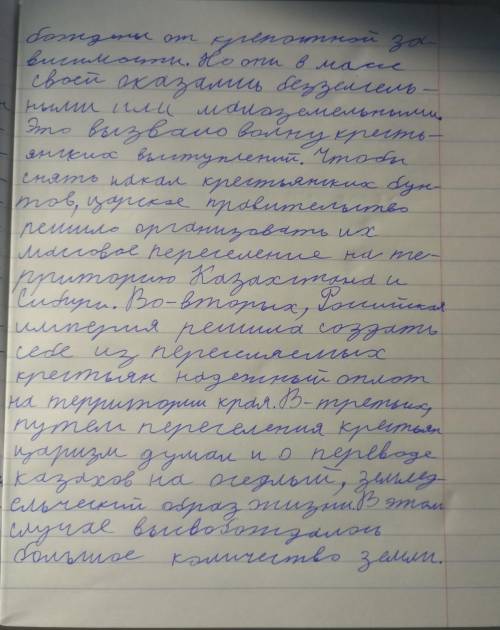 бождены от крепостной за-
висимости. Но они в массе
своей оказались безземель-
ными или малоземельными.
Это вызвало волну кресть-
янских выступлений. Чтобы
снять накал крестьянских бун-
тов, царское правительство
решило организовать их
массовое переселение на те-
рриторию Казахстана и
Сибири. Во-вторых, Российская
империя решила создать
себе из переселяемых
крестьян надежный оплот
на территории края. В-третьих,
путем переселения крестьян
царизм думал и о переводе
казахов на оседлый, землед-
ельческий образ жизни. В этом
случае высвобождалось
большое количество земли.